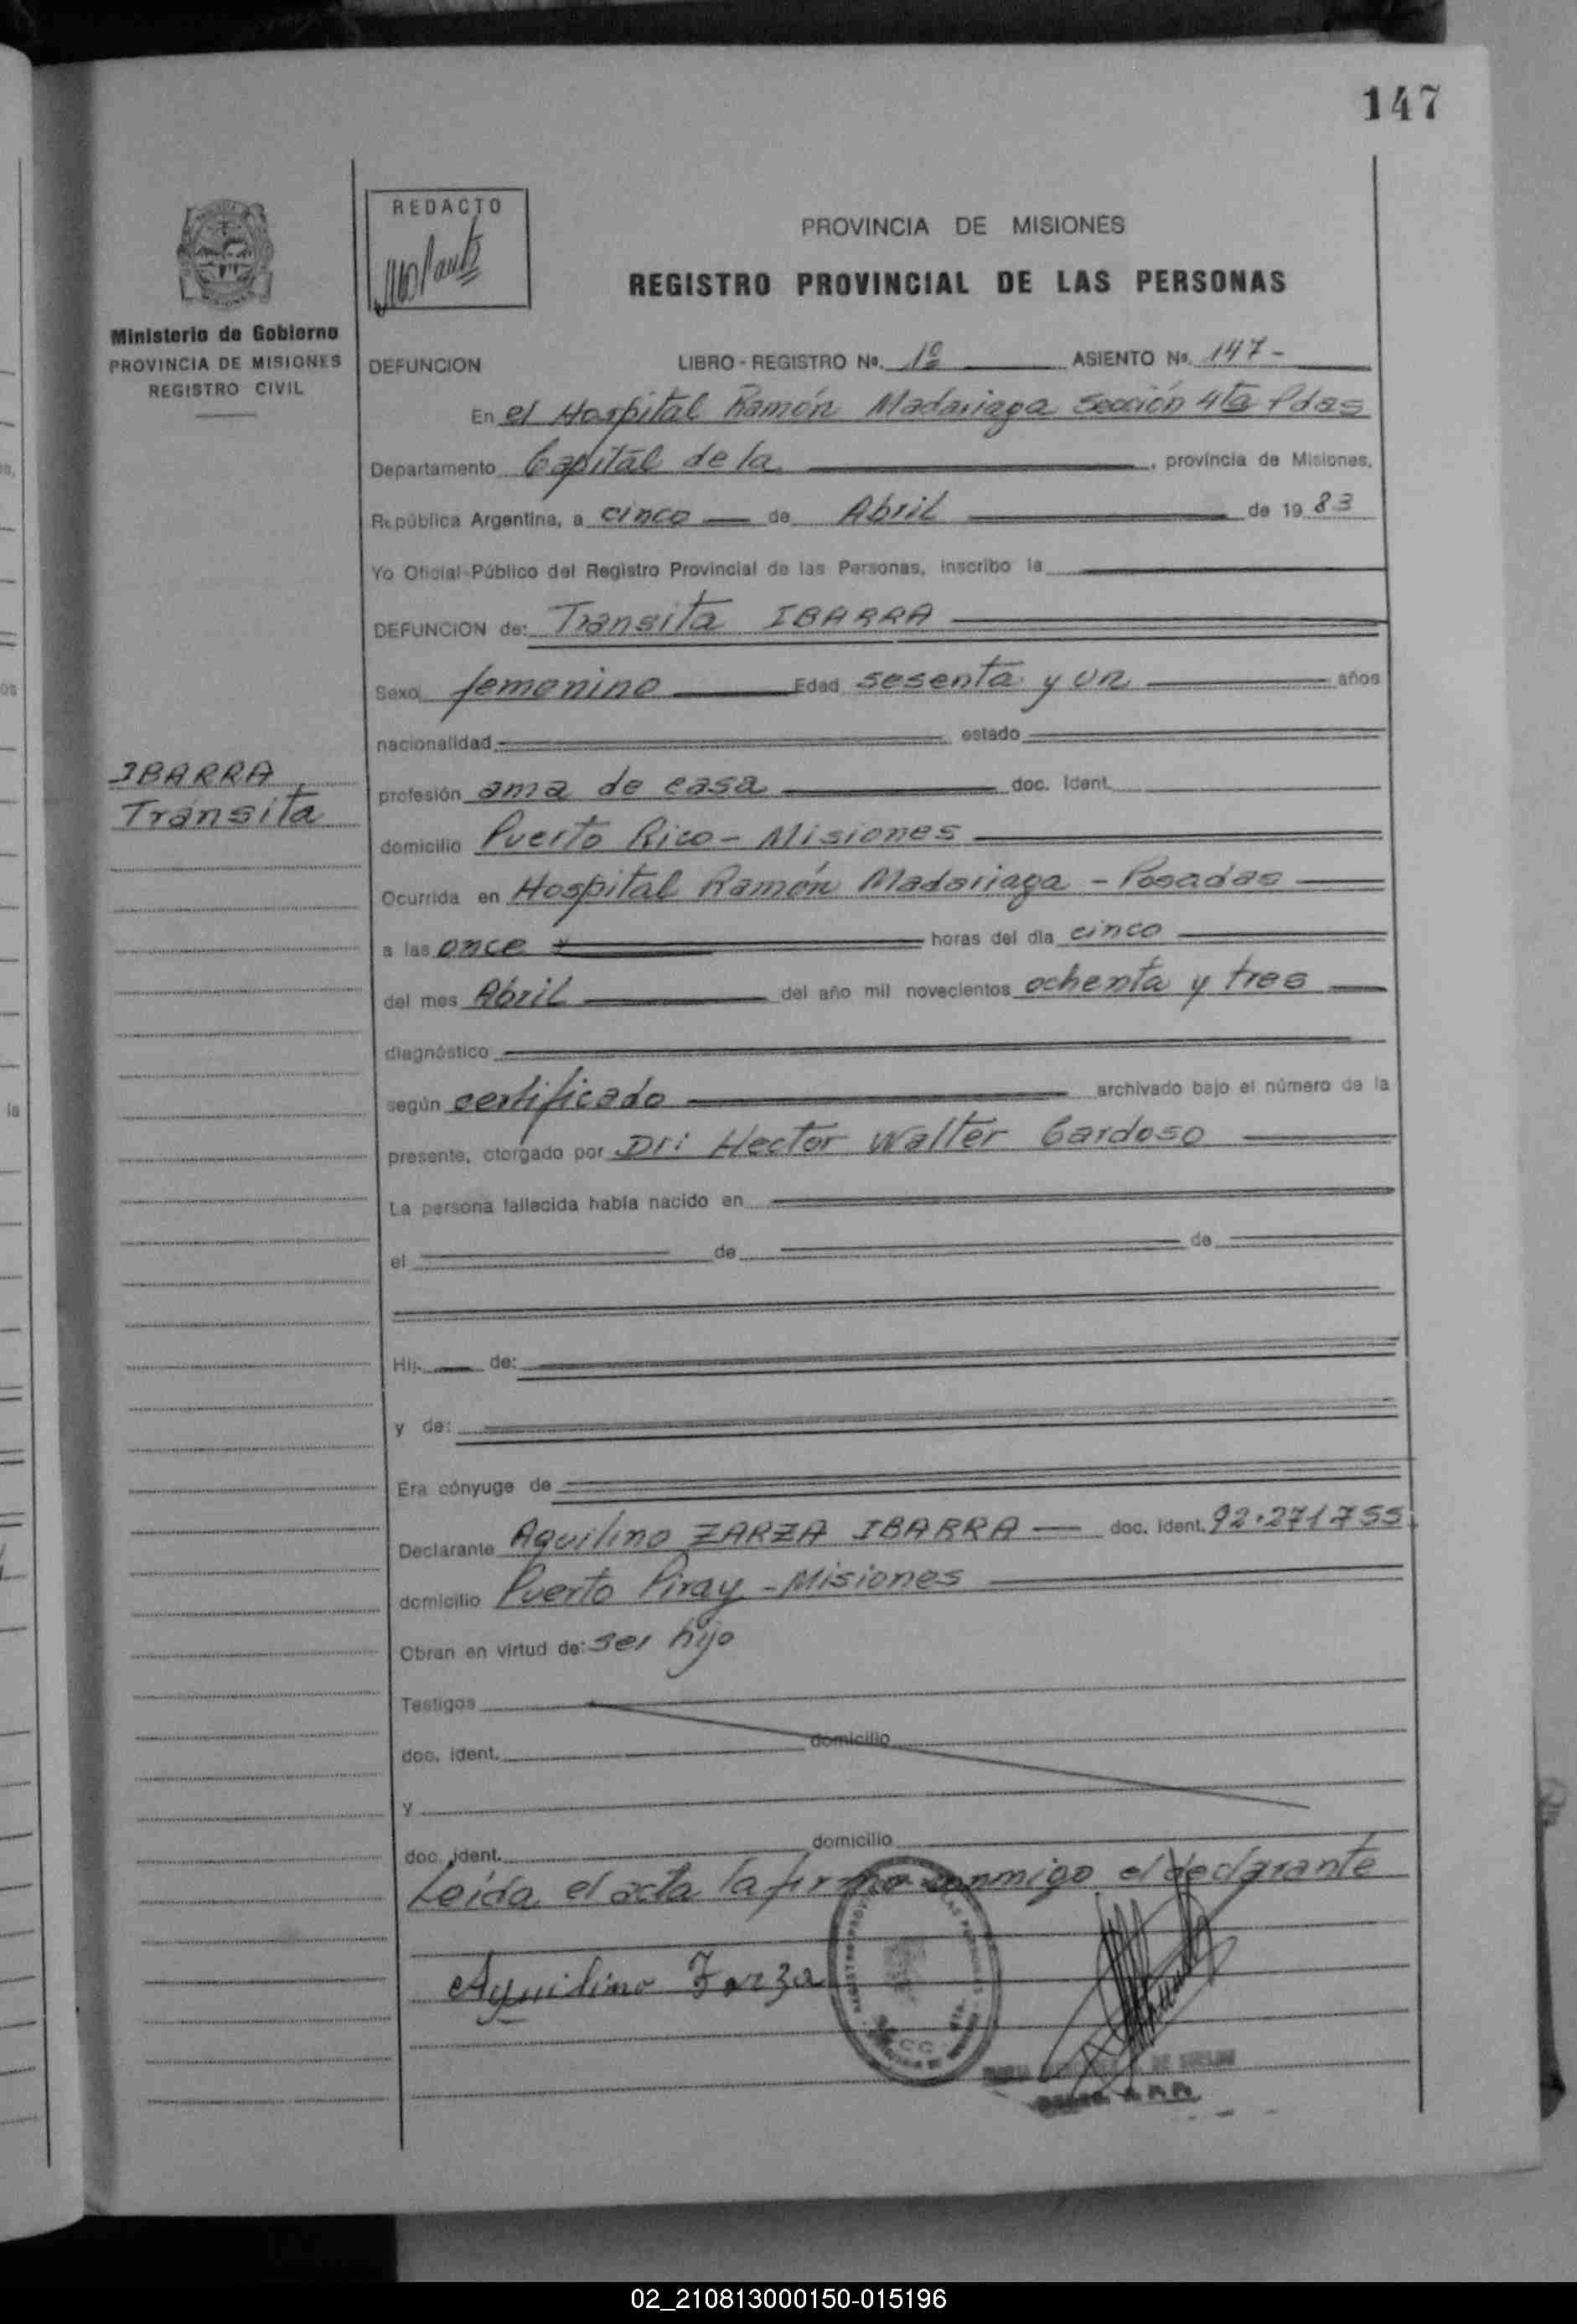 147
REDACTO
PROVINCIA DE MISIONES
REGISTRO PROVINCIAL DE LAS PERSONAS
Ministerio de Gobierno
PROVINCIA DE MISIONES
REGISTRO CIVIL
DEFUNCION LIBRO - REGISTRO No. 1º ASIENTO No. 147-
En el Hospital Ramón Madariaga Sección 4ta Pdas
Departamento Capital de la , provincia de Misiones,
República Argentina, a cinco de Abril de 19 83
Yo Oficial Público del Registro Provincial de las Personas, inscribo la
DEFUNCION de: Transita IBARRA
Sexo femenino Edad sesenta y un años
nacionalidad estado
IBARRA
Tránsita
profesión ama de casa doc. Ident.
domicilio Puerto Rico - Misiones
Ocurrida en Hospital Ramón Madariaga - Posadas
a las once horas del día cinco
del mes Abril del año mil novecientos ochenta y tres
diagnóstico
según certificado archivado bajo el número de la
presente, otorgado por Dr: Hector Walter Cardoso
La persona fallecida había nacido en
el de de
Hij. de:
y de:
Era cónyuge de
Declarante Aquilino ZARZA IBARRA doc. ident. 92.271.755
domicilio Puerto Piray - Misiones
Obran en virtud de: ser hijo
Testigos
doc. ident. domicilio
y
doc. ident. domicilio
Leída el acta la firma conmigo el declarante
Aquilino Zarza
02_210813000150-015196